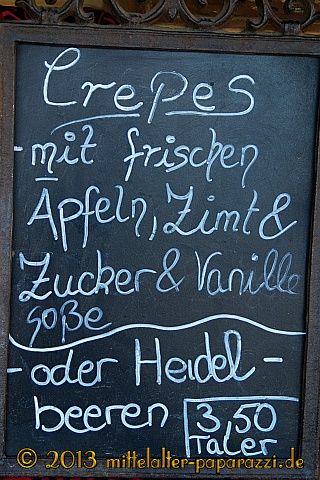 Crepes
- mit frischen
Äpfeln, Zimt &
Zucker & Vanille
soße
- oder Heidel -
beeren 3,50
Taler
© 2013 mittelalter-paparazzi.de